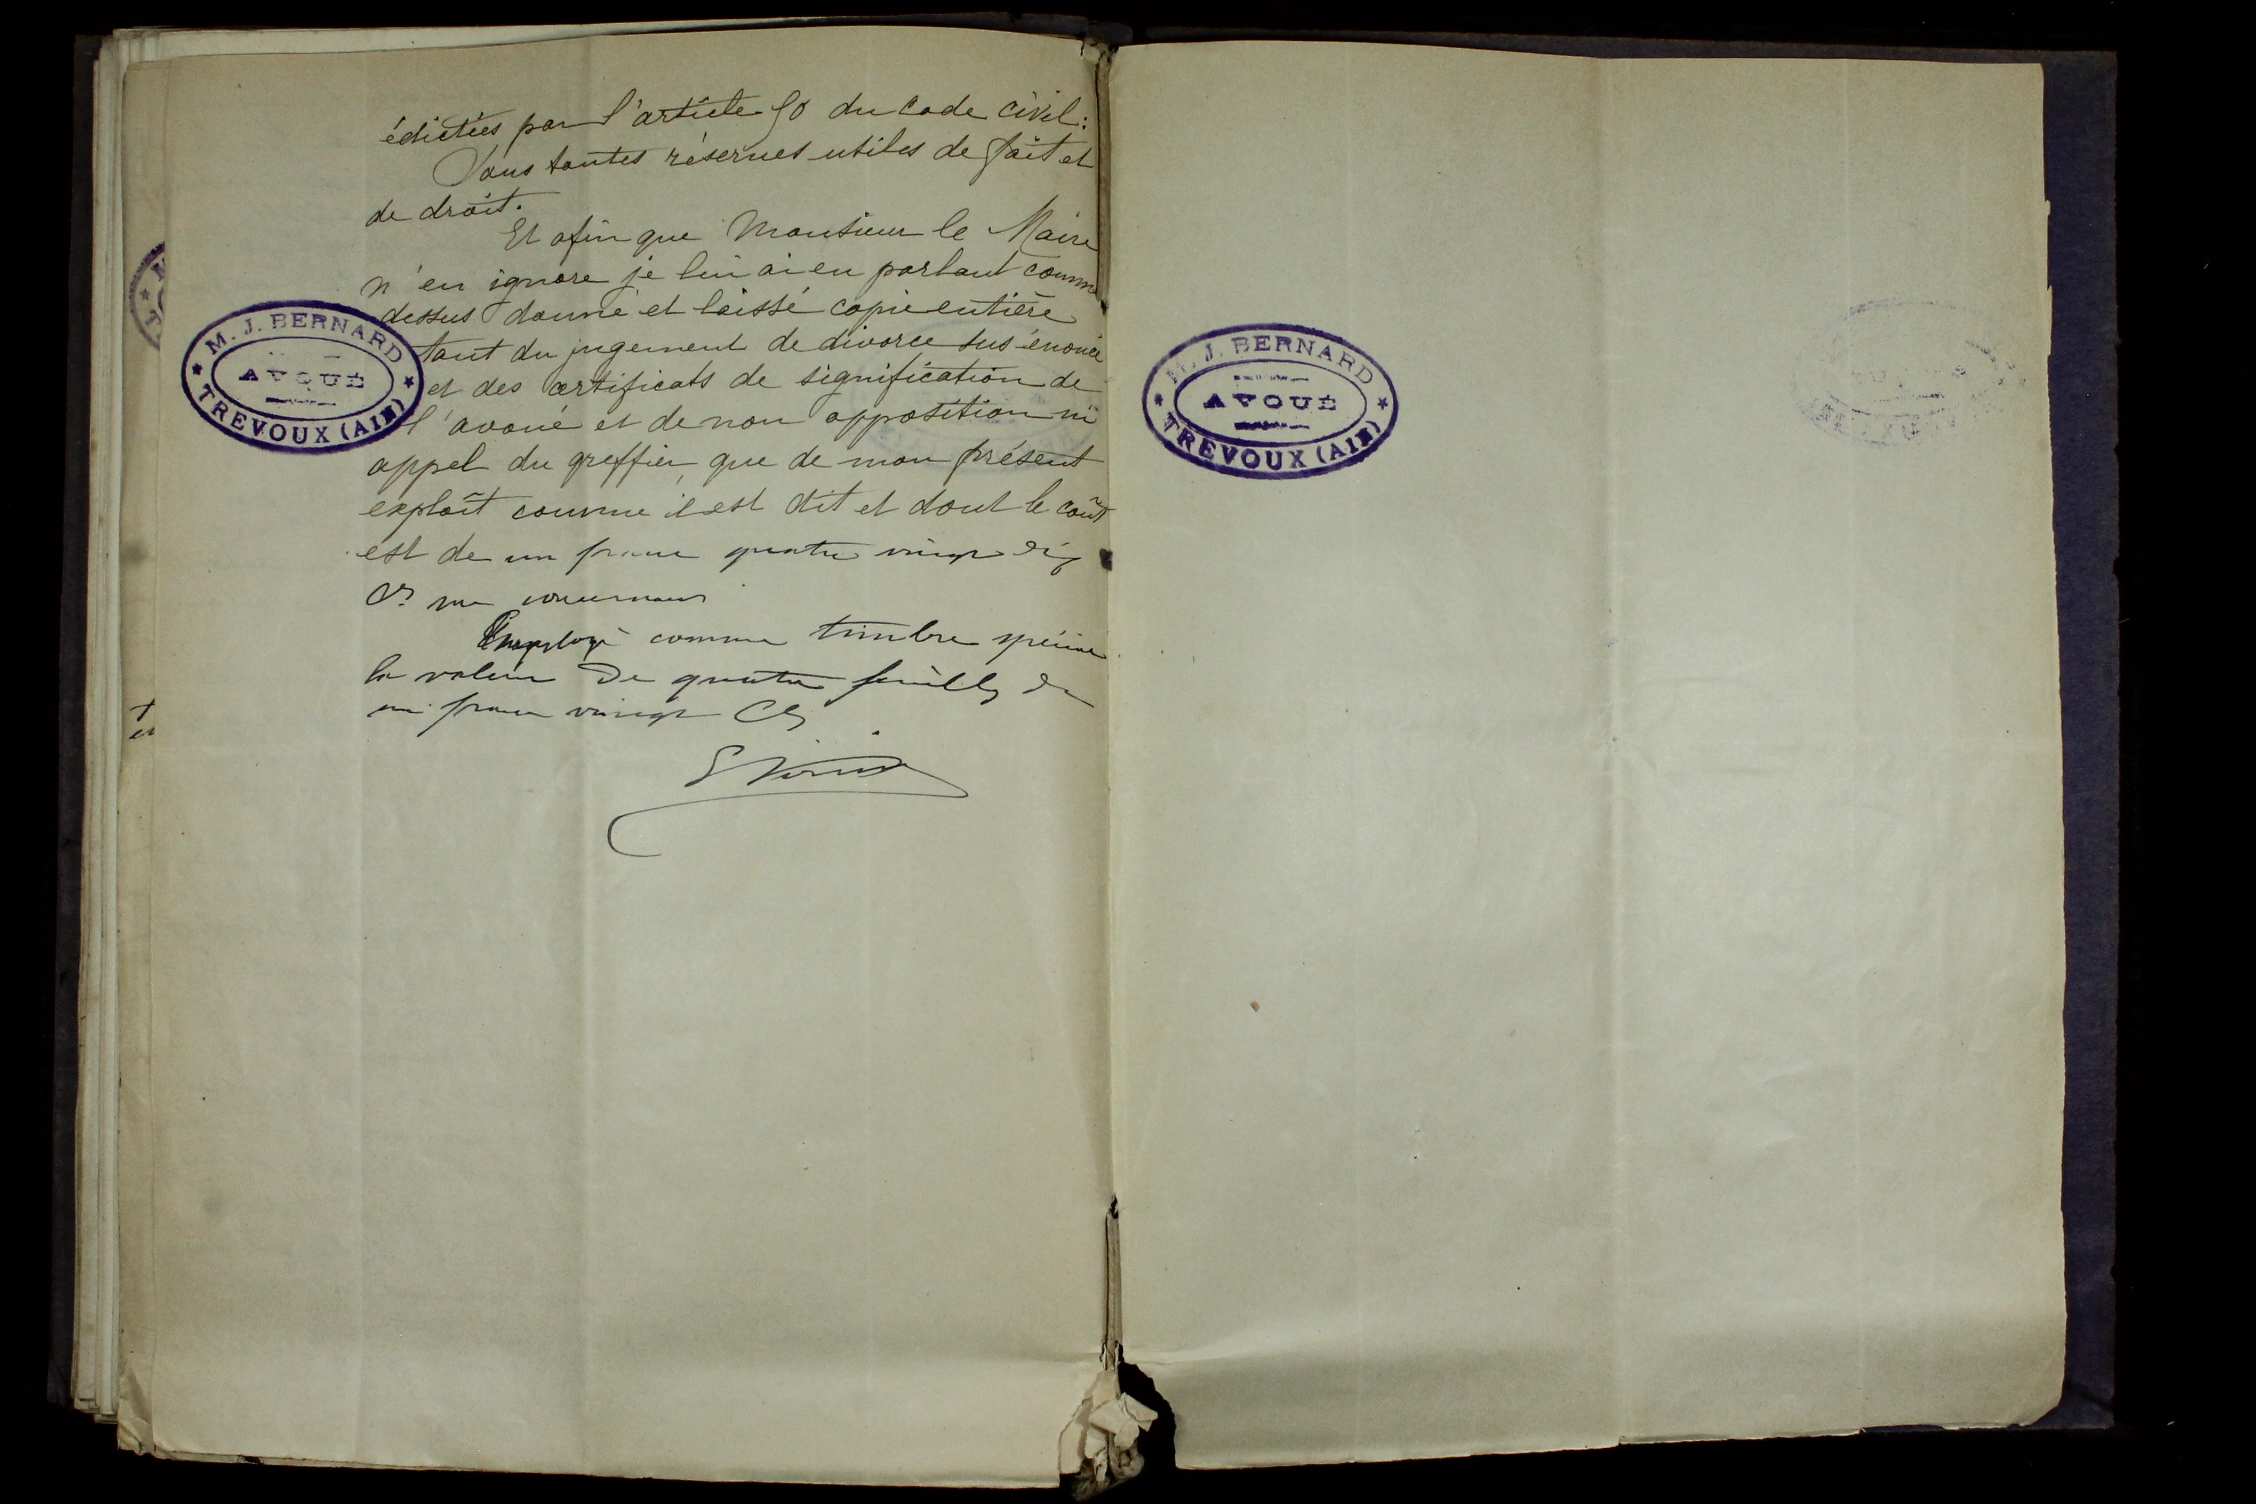 édictées par l'article 50 du code civil :
Sous toutes réserves utiles de fait et
de droit.
Et afin que Monsieur le Maire
n'en ignore je lui ai en parlant comme
dessus donné et laissé copie entière
tant du jugement de divorce sus énoncé
et des certificats de signification de
l'avoué et de non opposition ni
appel du greffier, que de mon présent
exploit comme il est dit et dont le coût
est de un franc quatre vingt dix
Cs me concernant
Employé comme timbre spécial
la valeur de quatre feuilles de
un franc vingt Cs
M. J. BERNARD
AVOUÉ
TREVOUX (AIN)
M. J. BERNARD
AVOUÉ
TREVOUX (AIN)